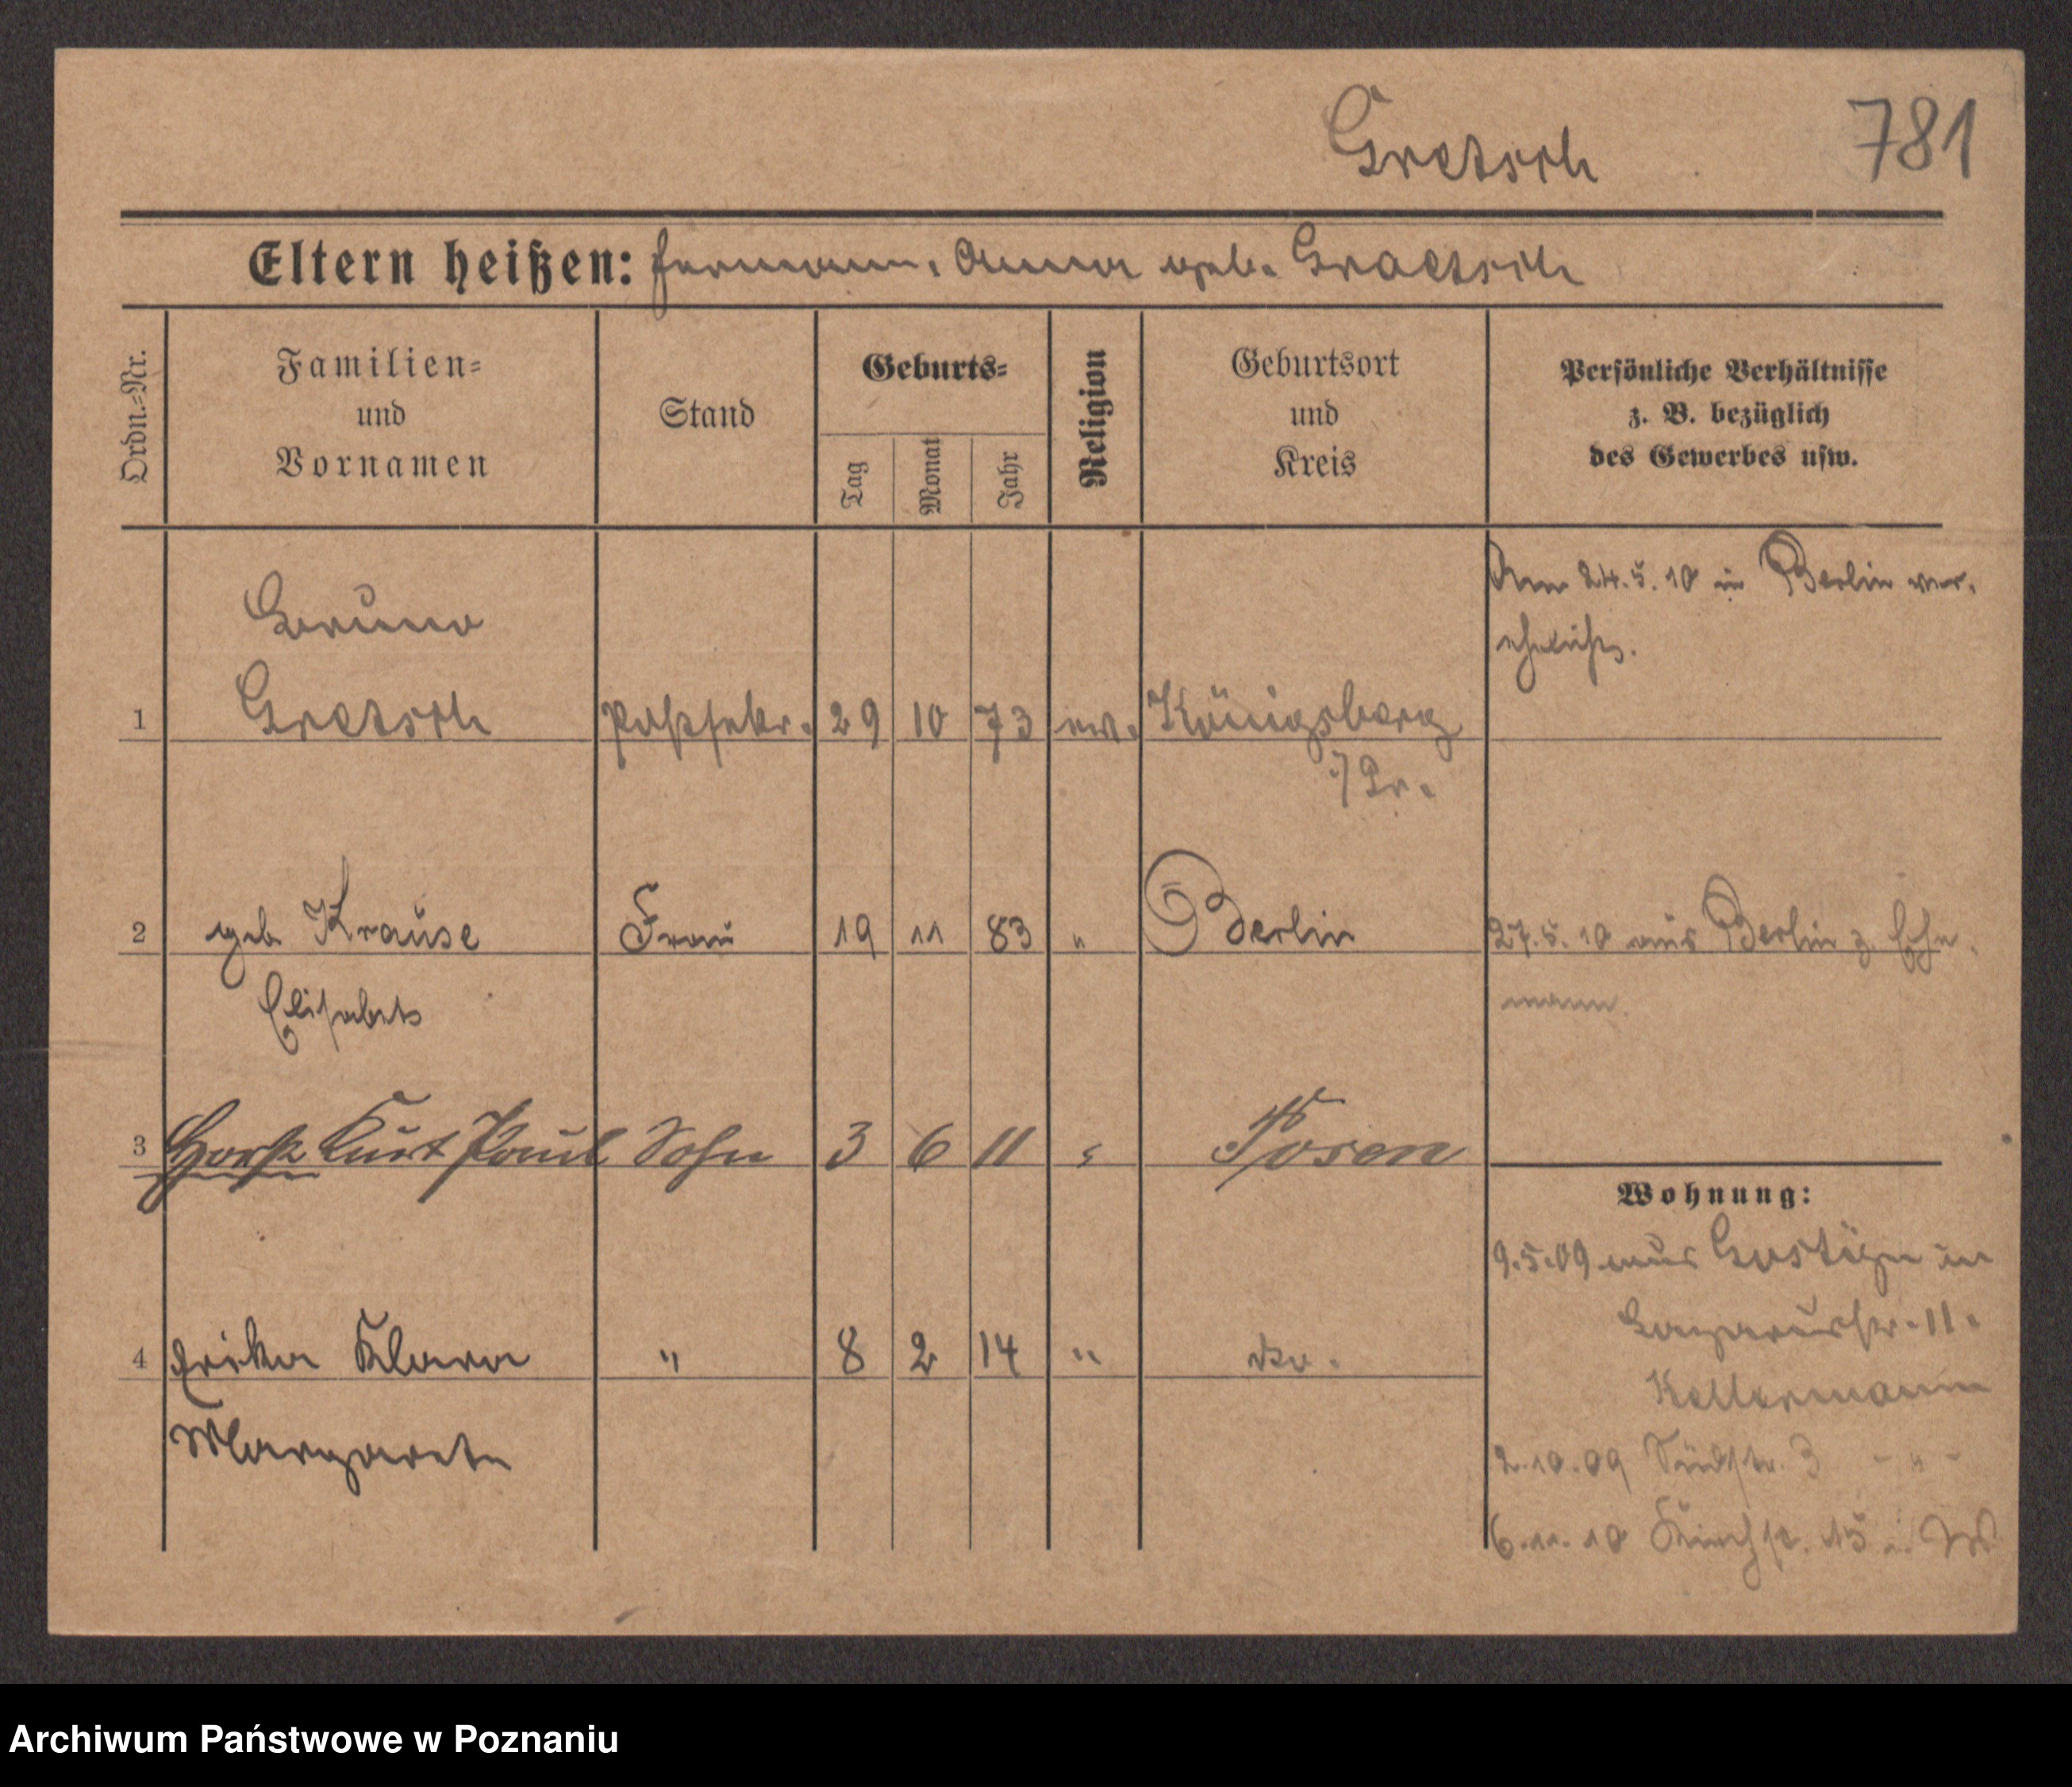 Gretsch 781
Eltern heißen: Hermann, Anna geb. Graetsch
Ordn.-Nr.
Familien-
und
Vornamen
Stand
Geburts-
Tag
Monat
Jahr
Religion
Geburtsort
und
Kreis
Persönliche Verhältnisse
z. B. bezüglich
des Gewerbes usw.
Bruno
1 Gretsch Postsekr. 29 10 73 ev. Königsberg
i/Pr.
Am 24.5.10 in Berlin ver-
ehelicht.
2 geb Krause Frau 19 11 83 " Berlin
Elisabeth
27.5.10 aus Berlin z. Ehe-
mann.
3 Horst Kurt Paul Sohn 3 6 11 " Posen
4 Erika Klara " 8 2 14 " do.
Margarete
Wohnung:
9.5.09 aus Gostyn in
Lazarusstr. 11.
Kellermann
2.10.09 Südstr. 3 - " -
6.11.10 Kirchstr. 15
Archiwum Państwowe w Poznaniu